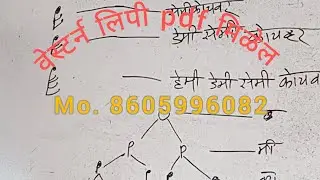 सेमीकोयवर
वेस्टर्न लिपी pdf मिळेल
डेमी सेमी कोयवर
हेमी डेमी सेमी कोयव
Mo. 8605996082